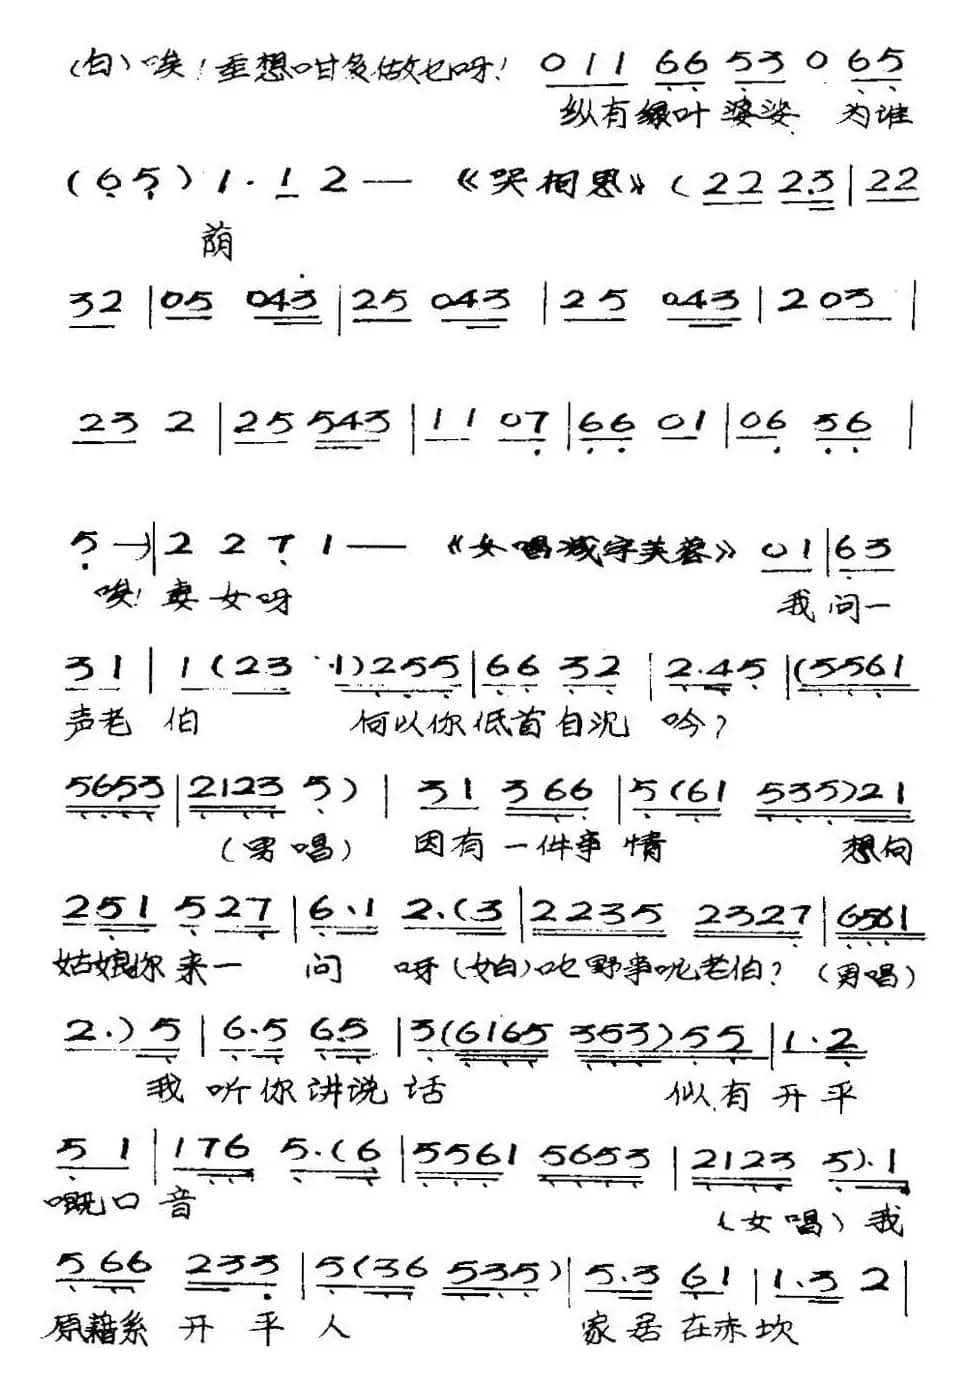 (白)唉!重想咁多做乜呀! 0 1 1 6 6 5 3 0 6 5
纵有绿叶婆娑 为谁
(6 5) 1· 1 2 — 《哭相思》(2 2 2·3 | 2 2
荫
3 2 | 0 5 0 4 3 | 2 5 0 4 3 | 2 5 0 4 3 | 2 0 3 |
2 3 2 | 2 5 5 4 3 | 1 1 0 7 | 6 6 0 1 | 0 6 5 6 |
5 —) | 2 2 7 1 — 《女唱减字芙蓉》 0 1 | 6 3
唉! 妻女呀 我问一
3 1 | 1 (2 3 ·1) 2 5 5 | 6 6 3 2 | 2·4 5 | (5 5 6 1
声老伯 何以你低首自沉吟?
5 6 5 3 | 2 1 2 3 5) | 3 1 3 6 6 | 5 (6 1 5 3 5) 2 1
(男唱) 因有一件事情 想向
2 5 1 5 2 7 | 6·1 2·(3 | 2 2 3 5 2 3 2 7 | 6 5 6 1
姑娘你来一 问 呀(女白)乜野事呢老伯?(男唱)
2·) 5 | 6·5 6 5 | 3 (6 1 6 5 3 5 3) 5 5 | 1·2
我听你讲说话 似有开平
5 1 | 1 7 6 5·(6 | 5 5 6 1 5 6 5 3 | 2 1 2 3 5)·1
嘅口音 (女唱)我
5 6 6 2 3 3 | 5 (3 6 5 3 5) | 5·3 6 1 | 1·3 2 |
原籍系开平人 家居在赤坎